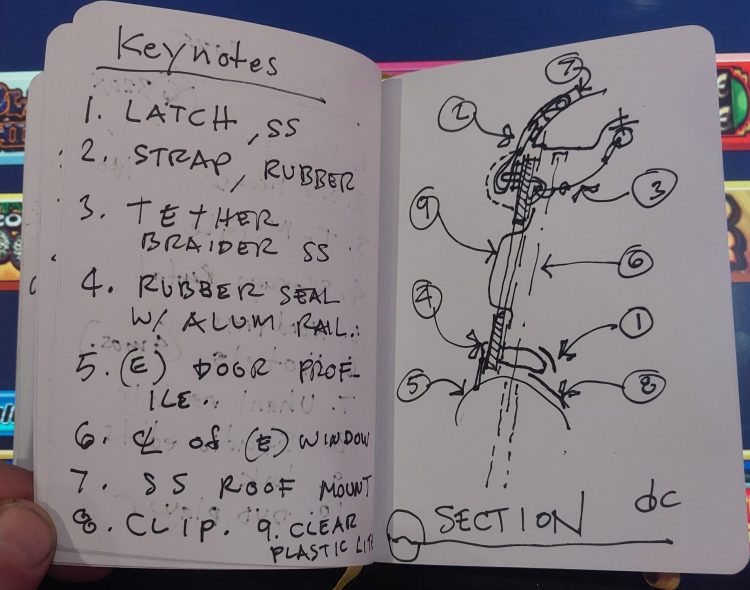 Keynotes
1. LATCH, SS
2. STRAP, RUBBER
3. TETHER
BRAIDER SS
4. RUBBER SEAL
W/ ALUM RAIL.
5. (E) DOOR PROF-
ILE.
6. ℄ of (E) WINDOW
7. SS ROOF MOUNT
8. CLIP. 9. CLEAR
PLASTIC LITE
7
2
3
9
6
4
1
5
8
SECTION
dc